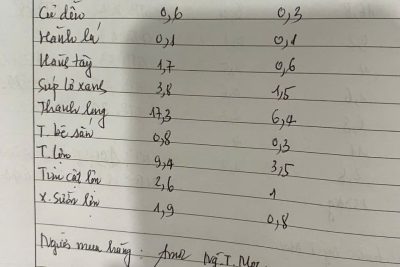 Củ dền 0,6 0,3
Hành lá 0,1 0,1
Hành tây 1,7 0,6
Súp lơ xanh 3,8 1,5
Thanh long 17,3 6,4
T. bê sấn 0,8 0,3
T. lợn 9,4 3,5
Tim cật lợn 2,6 1
X. sườn lợn 1,9 0,8
Người mua hàng: